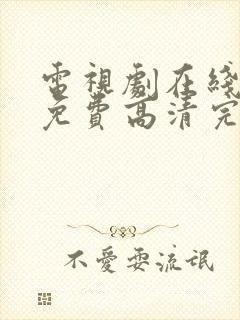 電視劇在綫
免費高清完
不愛耍流氓